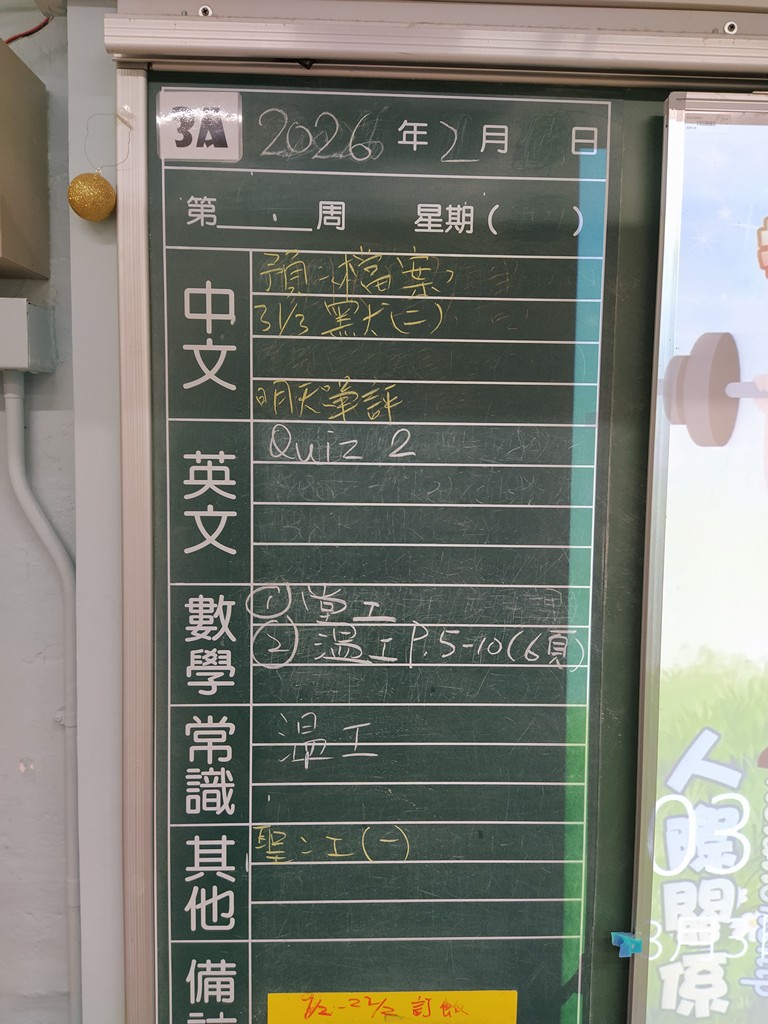 3A 2026 年 2 月 日
第 周 星期( )
中文
預:檔案
31/3 默大(二)
明天筆評
英文
Quiz 2
數學
① 堂工
② 溫工 P.5-10(6頁)
常識
溫工
其他
聖:工(一)
備
訂飯
人際關係
03
3月3